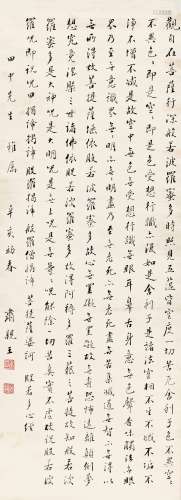 觀自在菩薩行深般若波羅蜜多時照見五蘊皆空度一切苦厄舍利子色不異空空
不異色色即是空空即是色受想行識亦復如是舍利子是諸法空相不生不滅不垢不
淨不增不減是故空中無色無受想行識無眼耳鼻舌身意無色聲香味觸法無眼
界乃至無意識界無無明亦無無明盡乃至無老死亦無老死盡無苦集滅道無智亦無得
無所得故菩提薩埵依般若波羅蜜多故心無罣礙無罣礙故無有恐怖遠離顛倒夢
想究竟涅槃三世諸佛依般若波羅蜜多故得阿耨多羅三藐三菩提故知般若波
羅蜜多是大神咒是大明咒是無上咒是無等等咒能除一切苦真實不虛故說般若波
羅蜜多咒即說咒曰揭諦揭諦波羅揭諦波羅僧揭諦菩提薩婆訶 般若多心經
田中先生 雅屬 辛亥初春 肅親王